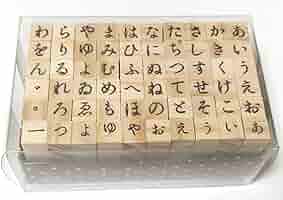 あいうえおぁ
かきくけこぃ
さしすせそぅ
たちつてとぇ
なにぬねのぉ
はひふへほゃ
まみむめもゅ
やゆよゑょ
らりるれろっ
わをんー